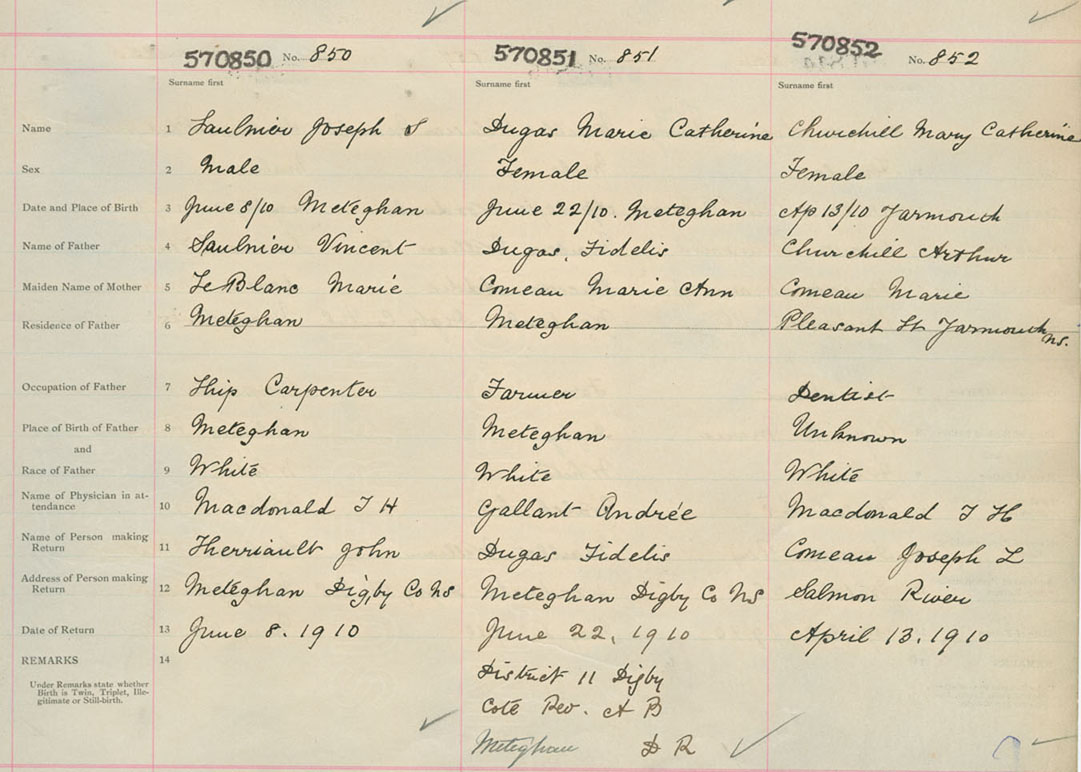 570850 No. 850 570851 No. 851 570852 No. 852
Surname first Surname first Surname first
Name 1 Saulnier Joseph S Dugas Marie Catherine Churchill Mary Catherine
Sex 2 Male Female Female
Date and Place of Birth 3 June 8/10 Meteghan June 22/10. Meteghan Ap 13/10 Yarmouth
Name of Father 4 Saulnier Vincent Dugas, Fidelis Churchill Arthur
Maiden Name of Mother 5 LeBlanc Marie Comeau Marie Ann Comeau Marie
Residence of Father 6 Meteghan Meteghan Pleasant St Yarmouth NS.
Occupation of Father 7 Ship Carpenter Farmer Dentist
Place of Birth of Father 8 Meteghan Meteghan Unknown
and
Race of Father 9 White White White
Name of Physician in at-
tendance 10 Macdonald T H Gallant Andrée Macdonald T H
Name of Person making
Return 11 Therriault John Dugas Fidelis Comeau Joseph L
Address of Person making
Return 12 Meteghan Digby Co NS Meteghan Digby Co NS Salmon River
Date of Return 13 June 8. 1910 June 22, 1910 April 13. 1910
REMARKS 14
Under Remarks state whether
Birth is Twin, Triplet, Ille-
gitimate or Still-birth.
District 11 Digby
Coté Rev. A B
Meteghan D R